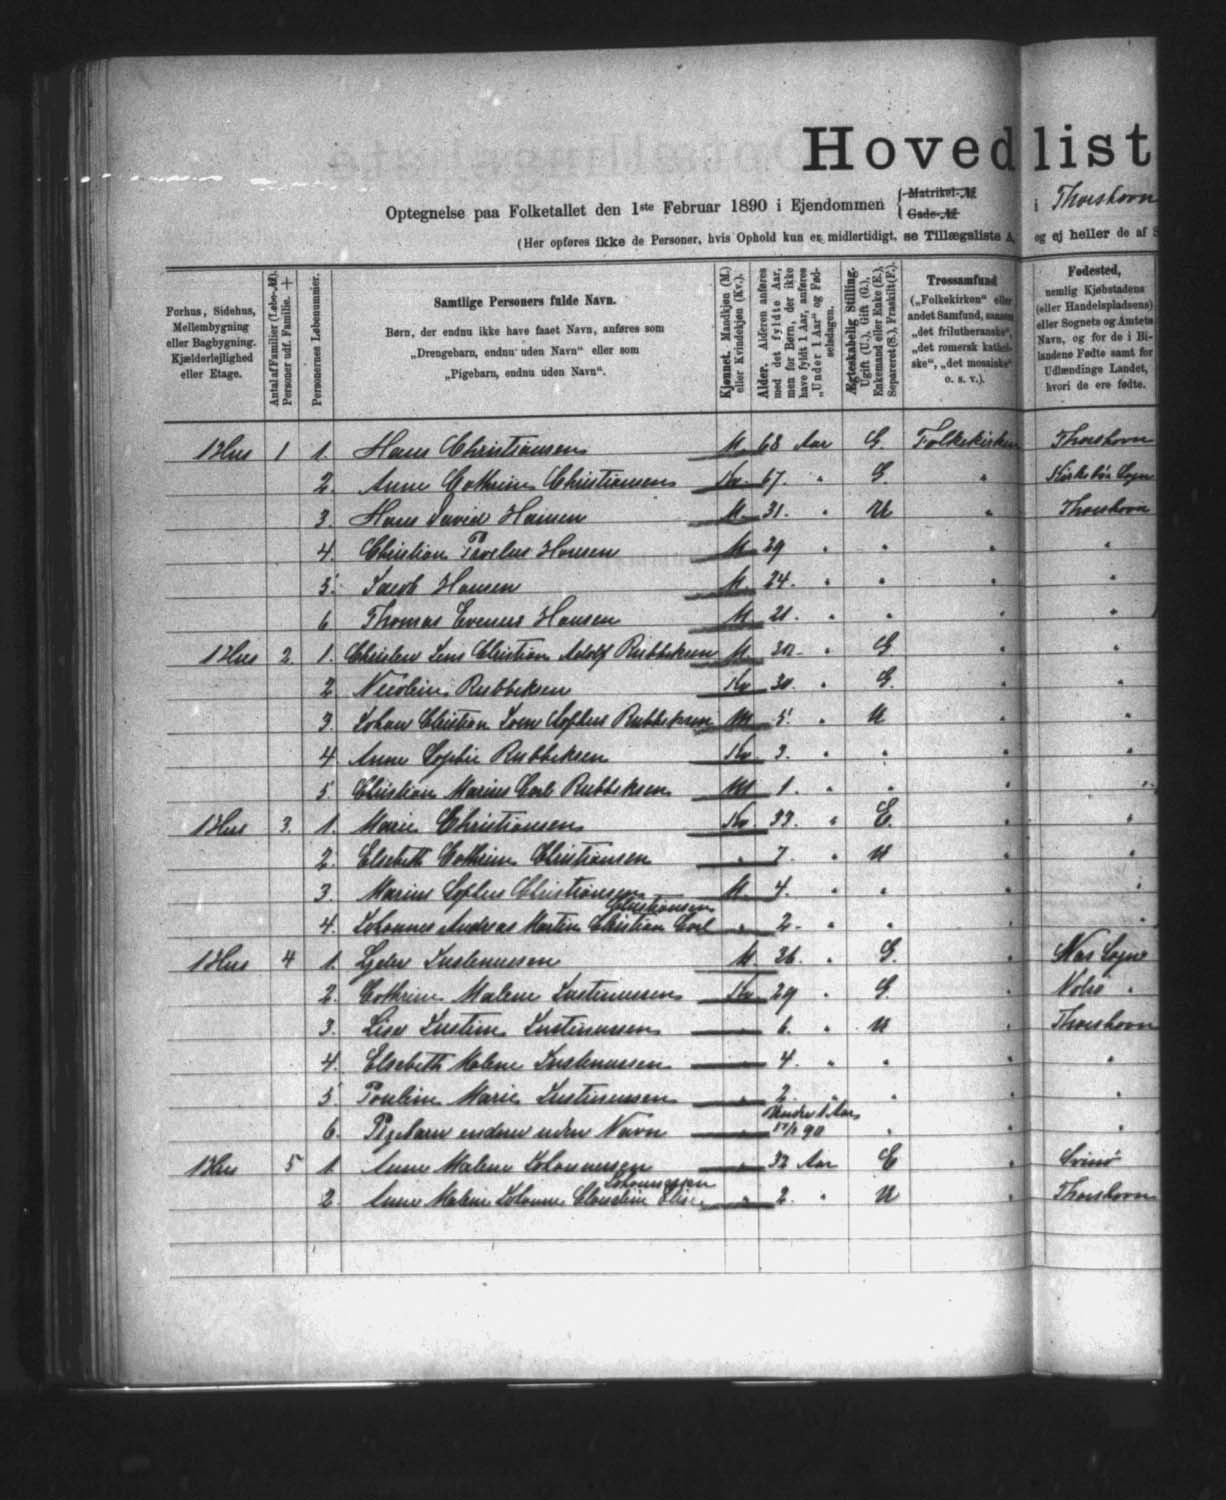 Hovedlist
Optegnelse paa Folketallet den 1ste Februar 1890 i Ejendommen { Matrikel-№ Gade-№ i Thorshavn
(Her opføres ikke de Personer, hvis Ophold kun er midlertidigt, se Tillægsliste A, og ej heller de af S
Forhus, Sidehus, Mellembygning eller Bagbygning. Kjælderlejlighed eller Etage.
Antal af Familier (Løbe-№). Personer udf. Familie. +
Personernes Løbenummer.
Samtlige Personers fulde Navn.
Børn, der endnu ikke have faaet Navn, anføres som
„Drengebarn, endnu uden Navn“ eller som
„Pigebarn, endnu uden Navn“.
Kjønnet. Mandkjøn (M.) eller Kvindekjøn (Kv.).
Alder. Alderen anføres med det fyldte Aar, men for Børn, der ikke have fyldt 1 Aar, anføres „Under 1 Aar“ og Fødselsdagen.
Ægteskabelig Stilling. Ugift (U.), Gift (G.), Enkemand eller Enke (E.), Separeret (S.), Fraskilt (F.).
Trossamfund
(„Folkekirken“ eller andet Samfund, saasom „det frilutheranske“, „det romersk katholske“, „det mosaiske“ o. s. v.).
Fødested,
nemlig Kjøbstadens (eller Handelspladsens) eller Sognets og Amtets Navn, og for de i Bilandene Fødte samt for Udlændinge Landet, hvori de ere fødte.
1 Hus 1 1. Hans Christiansen M. 68 Aar G. Folkekirken Thorshavn
2. Anne Cathrine Christiansen Kv. 67. " G. " Kirkebø Sogn
3. Hans David Hansen M. 31. " U " Thorshavn
4. Christian Hansen M. 29 " " " "
5. Jacob Hansen M. 24. " " " "
6 Thomas Hansen M 21. " " " "
1 Hus 2. 1. Jens Christian Adolf Rubbeksen M. " G " "
2 Nicoline Rubbeksen Kv 30. " G. " "
3. Johan Christian Sophus Rubbeksen M 5. " U " "
4 Anne Sophie Rubbeksen Kv 3. " " " "
5. Christian Marius Carl Rubbeksen M 1. " " " "
1 Hus 3. 1. Marie Christiansen Kv 33. " E. " "
2. Elsebeth Cathrine Christiansen " 7. " U " "
3. Marius Sophus Christiansen M. 4. " " " "
Christiansen
4. Johannes Andreas Martin Christian Carl " 2. " " " "
1 Hus 4 1. Justinussen M 36. " G. " Næs Sogn
2. Cathrine Malene Justinussen Kv 29 " G. " Nolsø "
3. Lise Justine Justinussen " 6. " U " Thorshavn
4. Elsebeth Malene Justinussen " 4. " " " "
5. Pouline Marie Justinussen " 2. " " " "
Under 1 Aar
6. Pigebarn endnu uden Navn " 90 " " "
1 Hus 5 1. Anne Malene Johannessen " Aar E " Svinø
Johannessen
2. Anne Malene Johanne Elise " 2. " U " Thorshavn